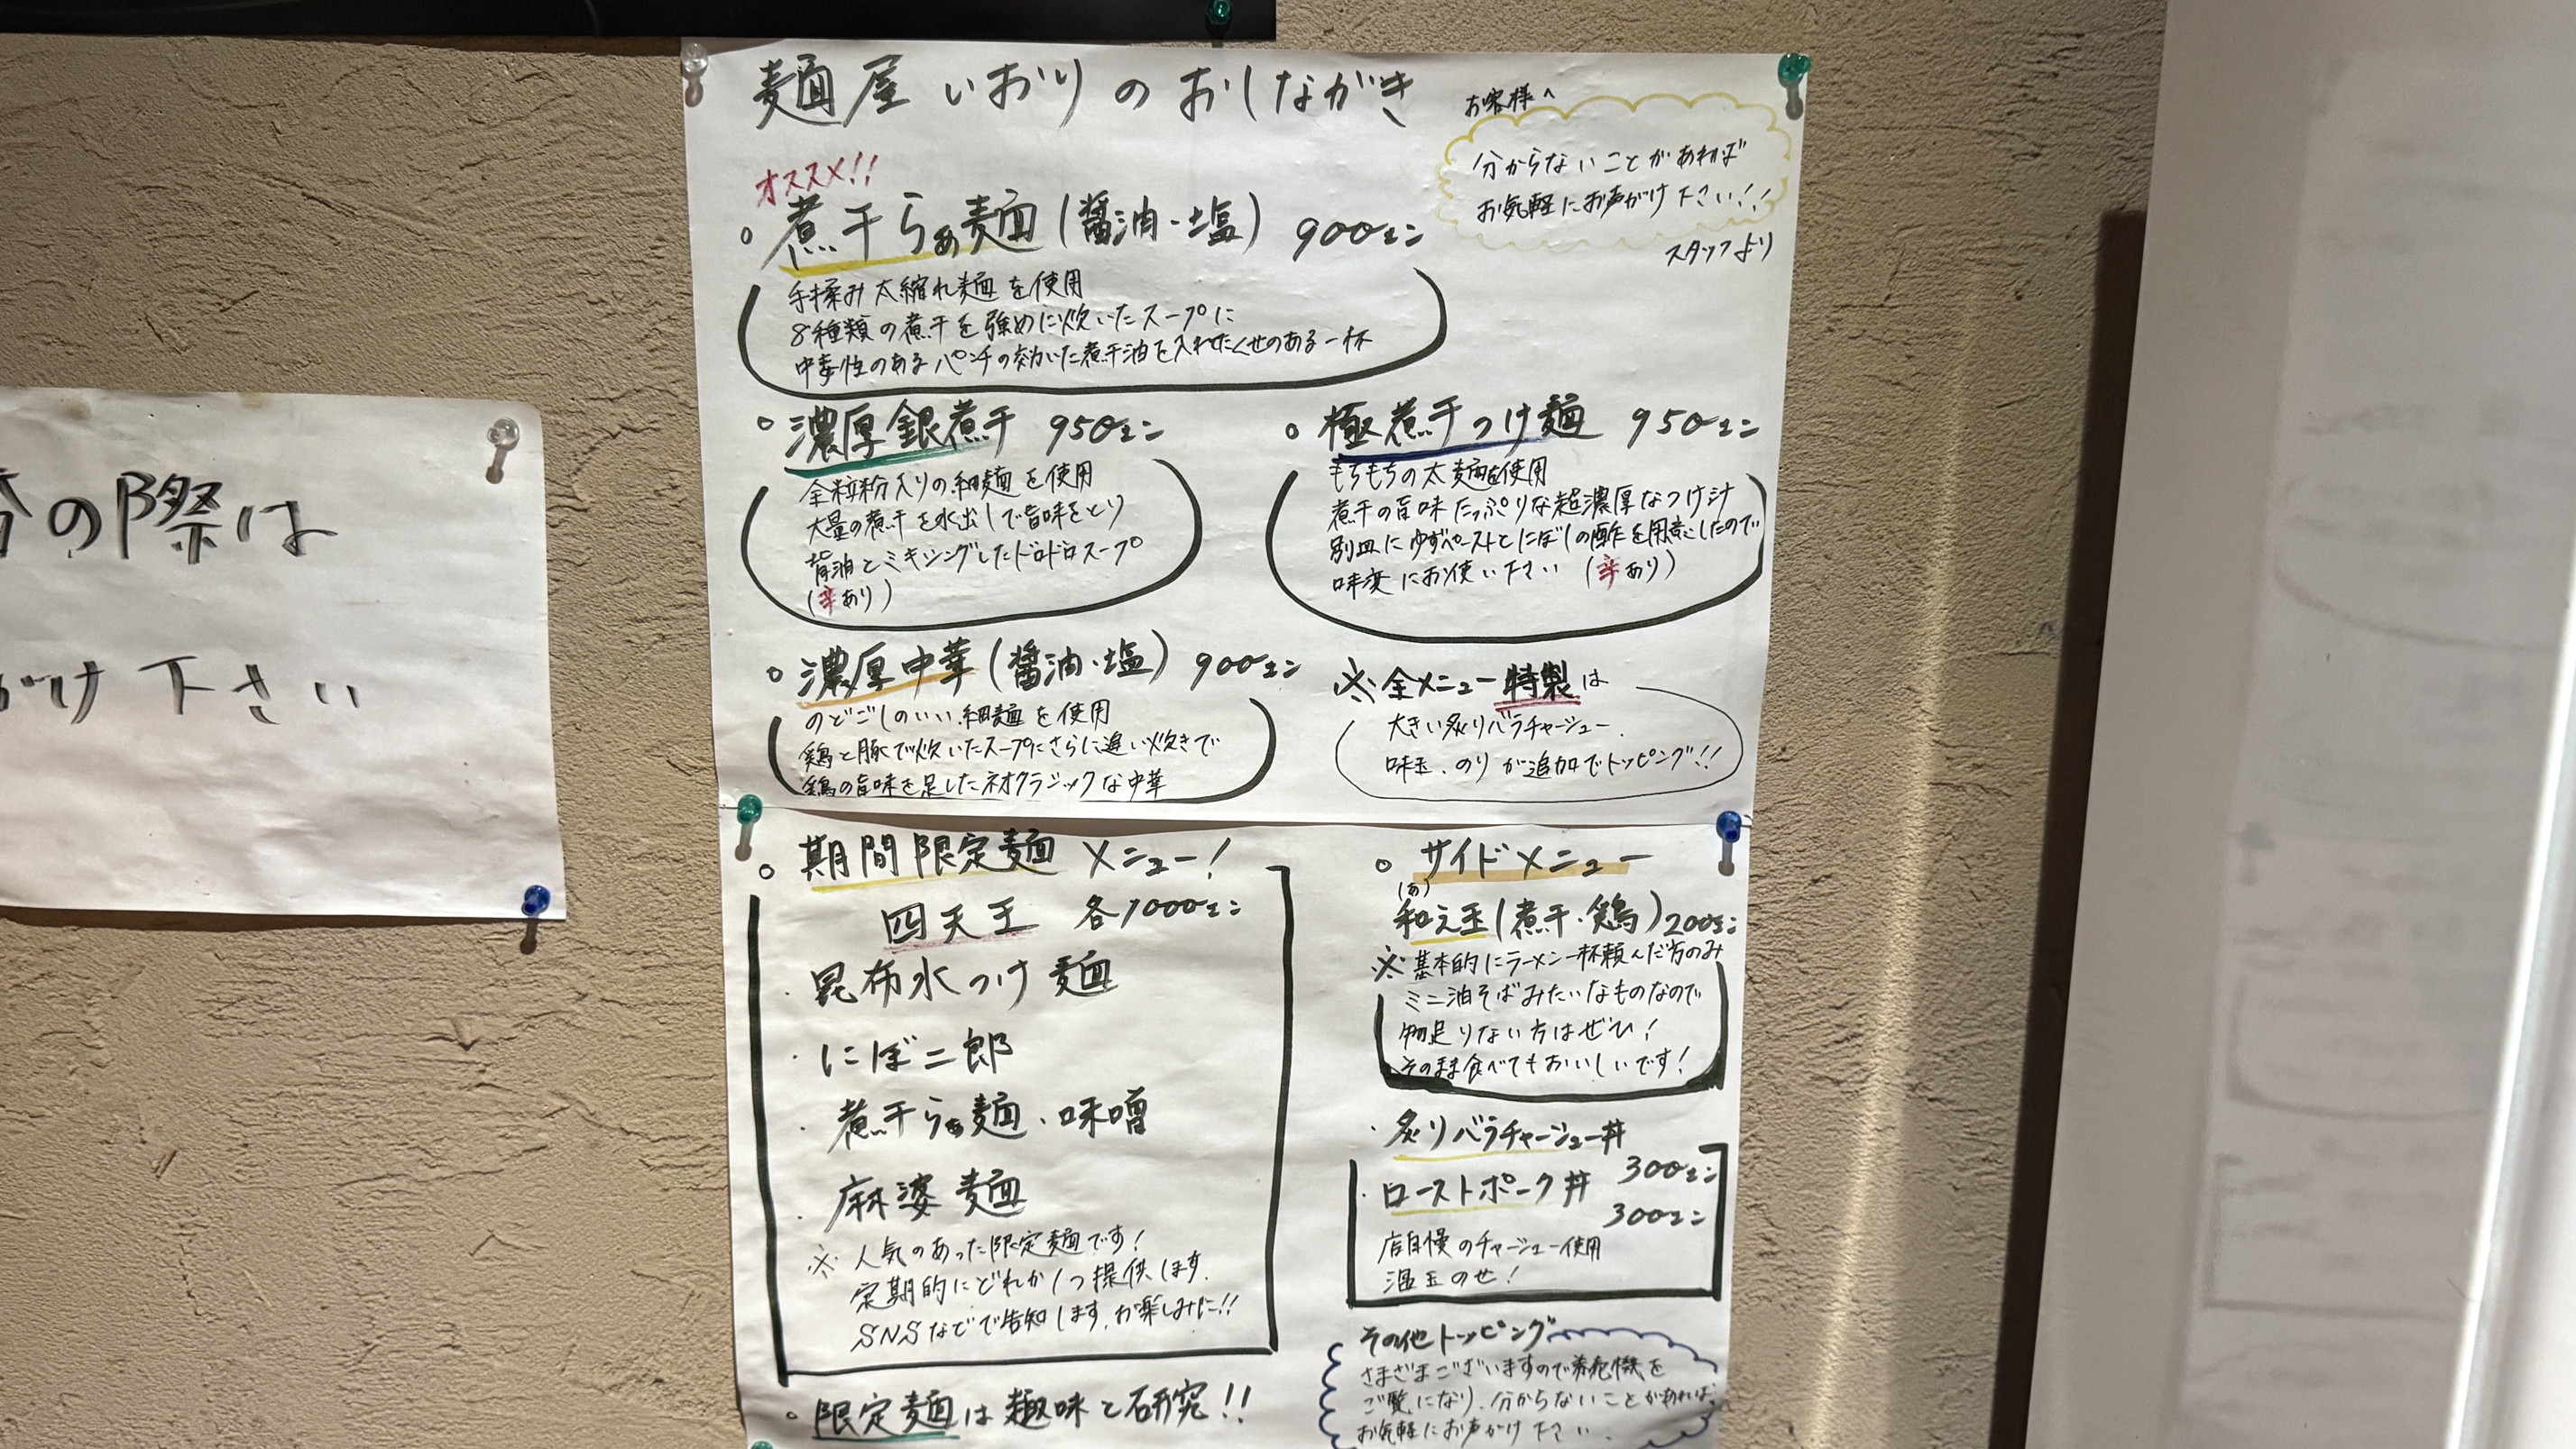 麺屋いおりのおしながき
お客様へ
分からないことがあれば
お気軽にお声がけ下さい!!
スタッフより
オススメ!!
。煮干らぁ麺(醤油・塩) 900エン
手揉み太縮れ麺を使用
8種類の煮干を強めに炊いたスープに
中毒性のあるパンチの効いた煮干油を入れたくせのある一杯
。濃厚銀煮干 950エン
全粒粉入りの細麺を使用
大量の煮干を水出しで旨味をとり
背油とミキシングしたドロドロスープ
(辛あり)
。極煮干つけ麺 950エン
もちもちの太麺を使用
煮干の旨味たっぷりな超濃厚なつけ汁
別皿にゆずペーストとにぼしの酢を用意したので
味変にお使い下さい (辛あり)
。濃厚中華(醤油・塩) 900エン
のどごしのいい細麺を使用
鶏と豚で炊いたスープにさらに追い炊きで
鶏の旨味を足したネオクラシックな中華
※全メニュー特製は
大きい炙りバラチャーシュー、
味玉、のりが追加でトッピング!!
。期間限定麺メニュー!
四天王 各1000エン
・昆布水つけ麺
・にぼ二郎
・煮干らぁ麺・味噌
・麻婆麺
※人気のあった限定麺です!
定期的にどれか1つ提供します。
SNSなどで告知します。お楽しみに!!
・限定麺は趣味と研究!!
。サイドメニュー
(あ)
和え玉(煮干・鶏)200エン
※基本的にラーメン一杯頼んだ方のみ
ミニ油そばみたいなものなので
物足りない方はぜひ!
そのまま食べてもおいしいです!
・炙りバラチャーシュー丼
300エン
・ローストポーク丼
300エン
店自慢のチャーシュー使用
温玉のせ!
その他トッピング
さまざまございますので券売機を
ご覧になり、分からないことがあれば、
お気軽にお声がけ下さい。
の際は
がけ下さい